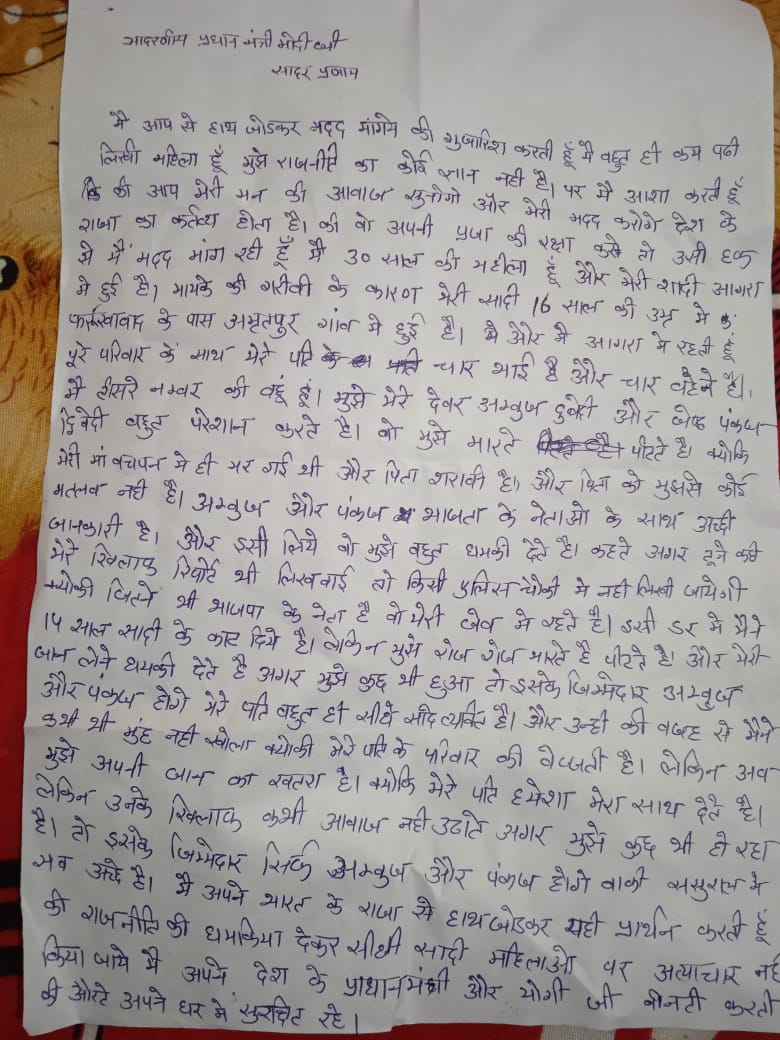 आदरणीय प्रधान मंत्री मोदी जी
सादर प्रणाम
मै आप से हाथ जोडकर मदद मांगने की गुजारिश करती हूँ मै बहुत ही कम पढी
लिखी महिला हूँ मुझे राजनीति का कोई ज्ञान नही है। पर मै आशा करती हूँ
कि की आप मेरी मन की आवाज सुनोगो और मेरी मदद करोगे देश के
राजा का कर्तव्य होता है। की वो अपनी प्रजा की रक्षा करे तो उसी हक
से मैं मदद मांग रही हूँ मै 30 साल की महीला हूँ और मेरी शादी आगरा
मे हुई है। मायके की गरीवी के कारण मेरी सादी 16 साल की उम्र मे
फर्रूखावाद के पास अमृतपुर गांव मे हुई है। मै और मै आगरा मे रहती हूं
पूरे परिवार के साथ मेरे पति चार भाई है और चार वहेने है।
मै तीसरे नम्वर की वहूं हूं। मुझे मेरे देवर अम्वुज दुवेदी और जेष्ठ पंकज
द्विवेदी वहुत परेशान करते है। वो मुझे मारते पीटते है। क्योकि
मेरी मां वचपन मे ही मर गई थी और पिता शरावी है। और पिता को मुझसे कोई
मतलव नही है। अम्वुज और पंकज भाजता के नेताओ के साथ अच्छी
जानकारी है। और इसी लिये वो मुझे वहुत धमकी देते है। कहते अगर तूने कभी
मेरे खिलाफ रिपोर्ट भी लिखवाई तो किसी पुलिस चोकी मे नही लिखी जायेगी
क्योकी जितने भी भाजपा के नेता है वो मेरी जेव मे रहते है। इसी डर मे मैने
14 साल सादी के काट दिये है। लेकिन मुझे रोज रोज मारते है पीटते है। और मेरी
जान लेने धमकी देते है अगर मुझे कुछ भी हुआ तो इसके जिम्मेदार अम्वुज
और पंकज होगे मेरे पति वहुत ही सीधे सादे व्यक्ति है। और उन्ही की वजह से मैने
कभी भी मुंह नही खोला क्योकी मेरे पति के परिवार की वेज्जती है। लेकिन अव
मुझे अपनी जान का खतरा है। क्योकि मेरे पति हमेशा मेरा साथ देते है।
लेकिन उनके खिलाफ कभी आवाज नही उठाते अगर मुझे कुछ भी हो रहा
है। तो इसके जिम्मेदार सिर्फ अम्वुज और पंकज होगे वाकी ससुराल मे
सव अच्छे है। मै अपने भारत के राजा से हाथ जोडकर यही प्रार्थन करती हूँ
की राजनीति की धमकिया देकर सीधी सादी महिलाओ पर अत्याचार
किया जाये मै अपने देश के प्राधानमंत्री और योगी जी वीनती करती
की औरते अपने घर मे सुरक्षित रहे।